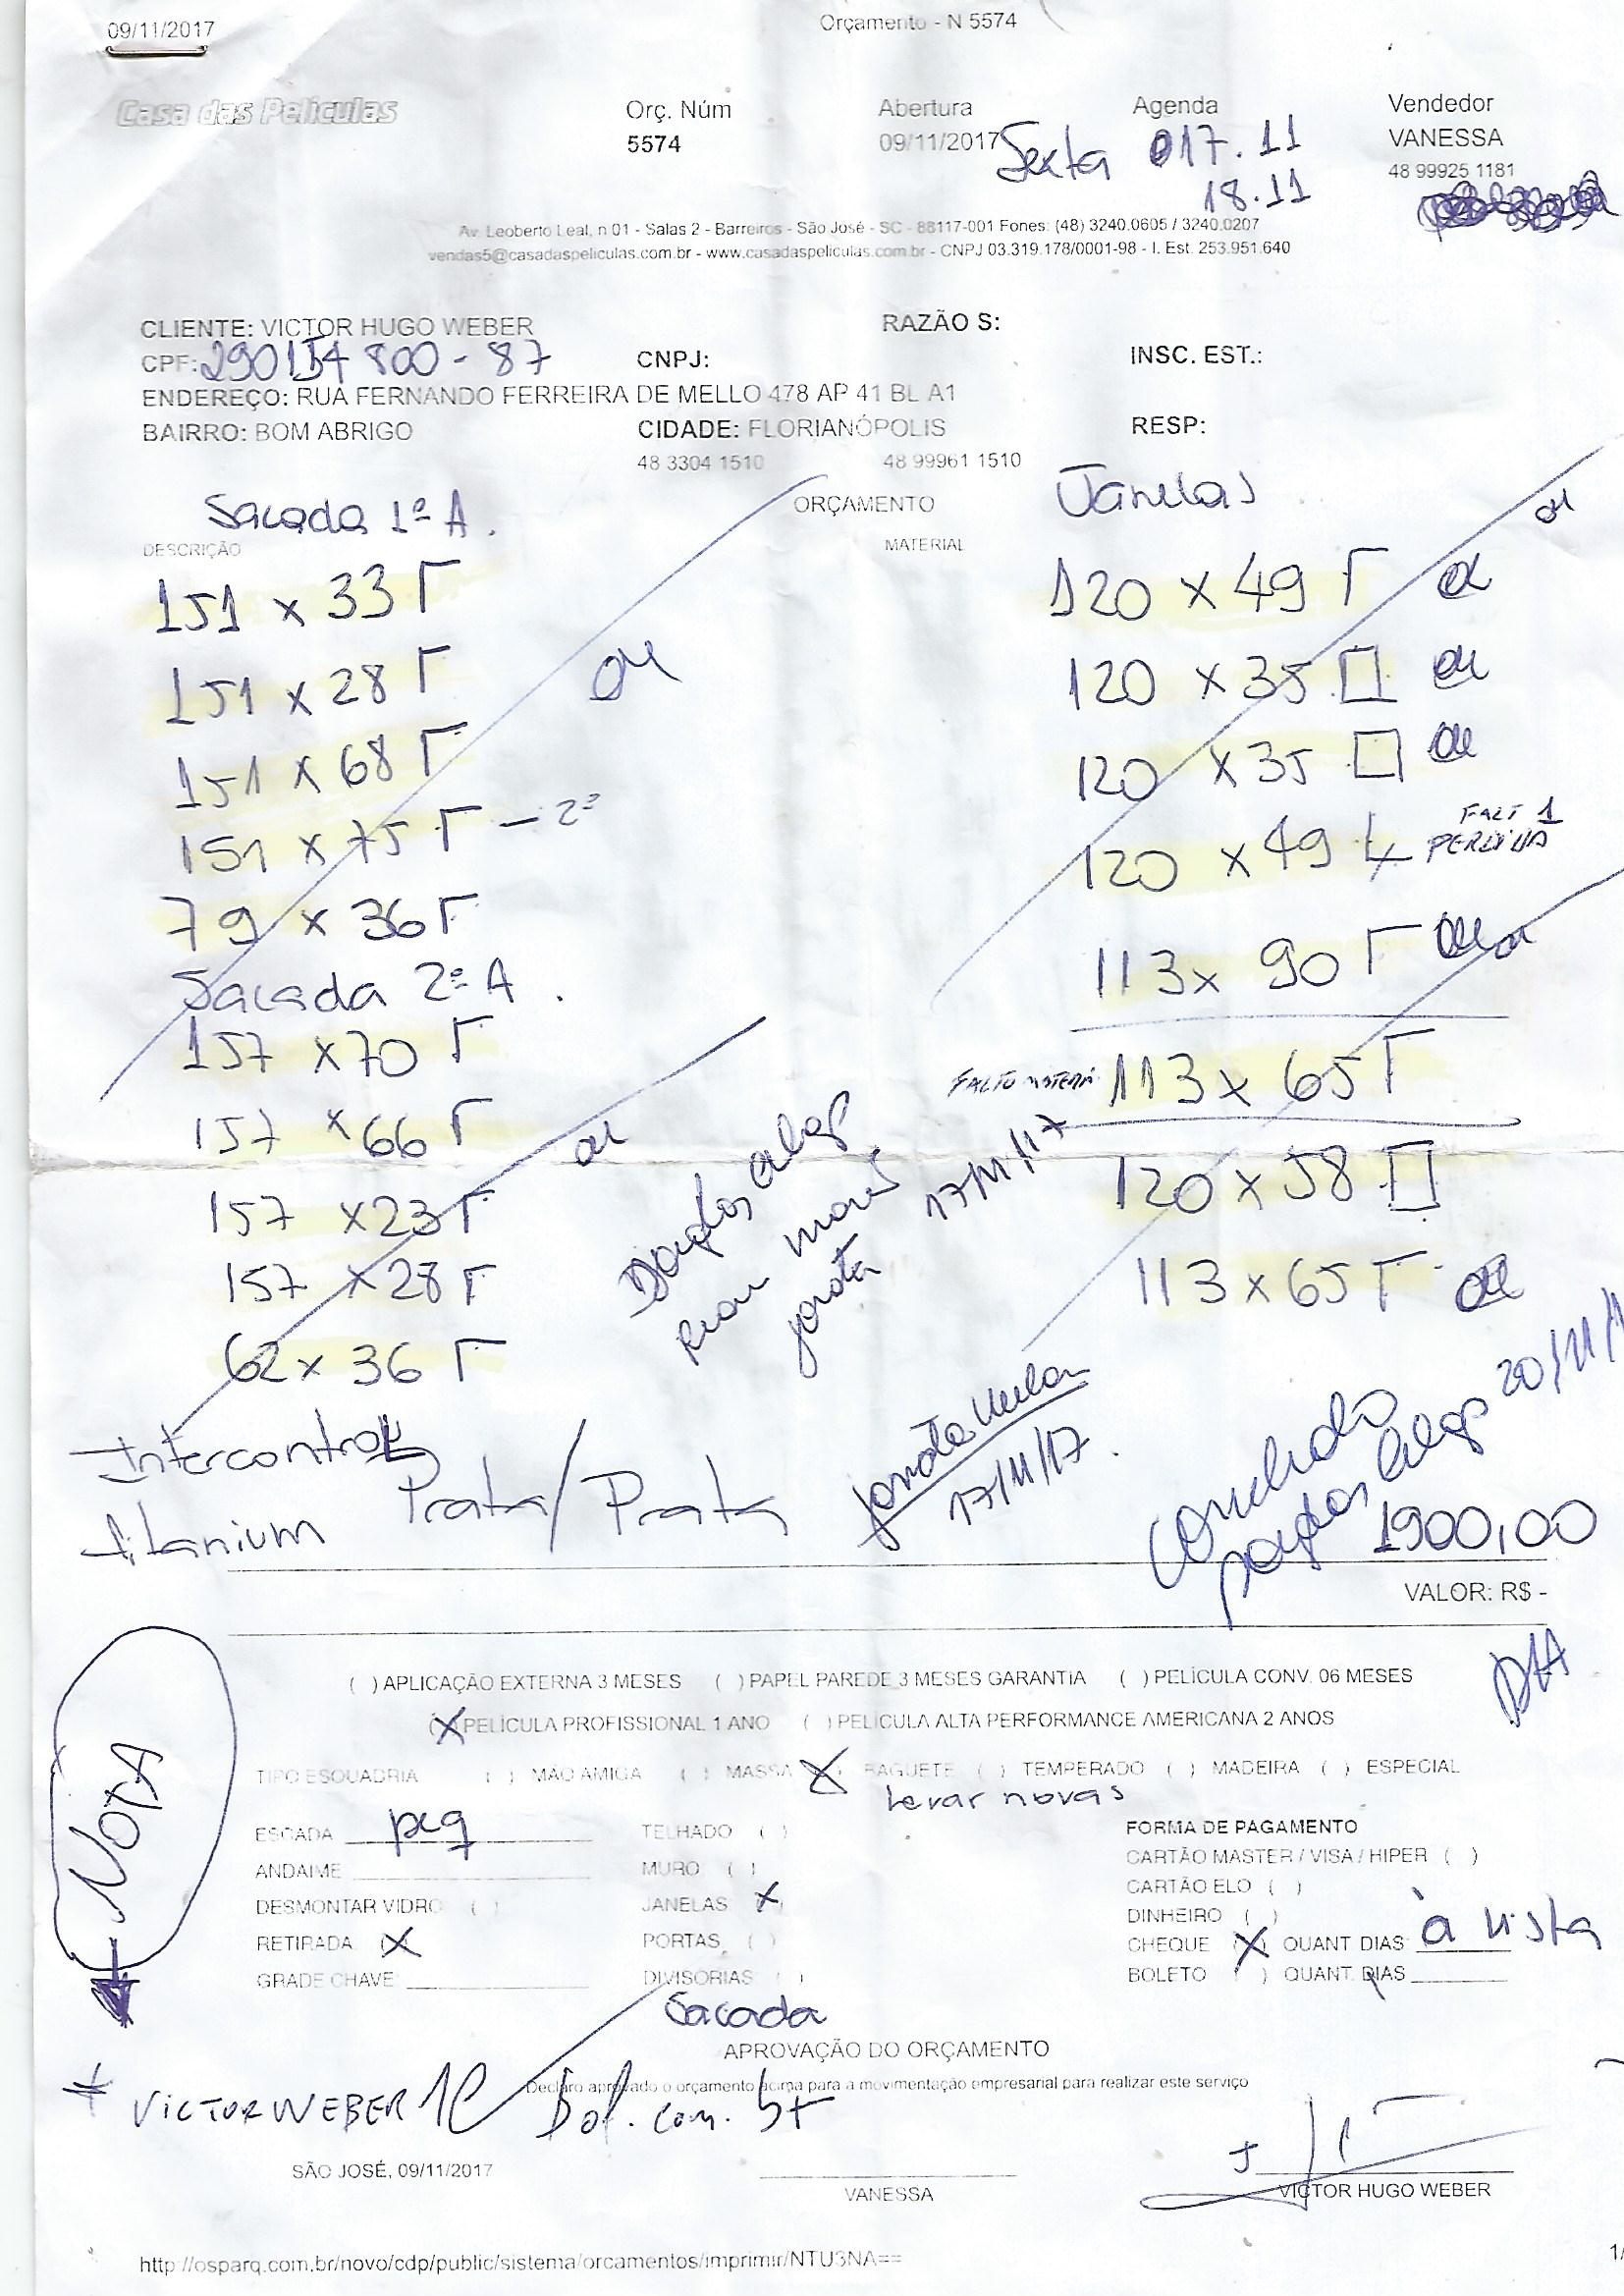 09/11/2017
Orçamento - N 5574
Casa das Películas
Orç. Núm
5574
Abertura
09/11/2017
Agenda
Sexta 017.11
18.11
Vendedor
VANESSA
48 99925 1181
Av. Leoberto Leal, n 01 - Salas 2 - Barreiros - São José - SC - 88117-001 Fones: (48) 3240.0605 / 3240.0207
vendas5@casadaspeliculas.com.br - www.casadaspeliculas.com.br - CNPJ 03.319.178/0001-98 - I. Est. 253.951.640
CLIENTE: VICTOR HUGO WEBER
RAZÃO S:
CPF: 290154 800-87
CNPJ:
INSC. EST.:
ENDEREÇO: RUA FERNANDO FERREIRA DE MELLO 478 AP 41 BL A1
BAIRRO: BOM ABRIGO
CIDADE: FLORIANÓPOLIS
RESP:
48 3304 1510
48 99961 1510
ORÇAMENTO
DESCRIÇÃO
MATERIAL
Sacada 1ª A.
151 x 33
151 x 28
151 x 68
151 x 75 - 2ª
79 x 36
Sacada 2ª A.
157 x 70
157 x 66
157 x 23
157 x 28
62 x 36
Janelas
120 x 49
120 x 35
120 x 35
120 x 49
113 x 90
113 x 65
120 x 58
113 x 65
17/11/17
17/11/17.
Intercontrol
titanium
Prata/Prata
20/11/1
1900,00
VALOR: R$ -
( ) APLICAÇÃO EXTERNA 3 MESES ( ) PAPEL PAREDE 3 MESES GARANTIA ( ) PELÍCULA CONV. 06 MESES
(X) PELÍCULA PROFISSIONAL 1 ANO ( ) PELÍCULA ALTA PERFORMANCE AMERICANA 2 ANOS
TIPO ESQUADRIA ( ) MÃO AMIGA ( ) MASSA (X) BAGUETE ( ) TEMPERADO ( ) MADEIRA ( ) ESPECIAL
Levar novas
NOTA
ESCADA peq
ANDAIME
DESMONTAR VIDRO ( )
RETIRADA (X)
GRADE CHAVE
TELHADO ( )
MURO ( )
JANELAS (X)
PORTAS ( )
DIVISÓRIAS ( )
Sacada
FORMA DE PAGAMENTO
CARTÃO MASTER / VISA / HIPER ( )
CARTÃO ELO ( )
DINHEIRO ( )
CHEQUE (X) QUANT DIAS à vista
BOLETO ( ) QUANT. DIAS
APROVAÇÃO DO ORÇAMENTO
Declaro aprovado o orçamento acima para a movimentação empresarial para realizar este serviço
* VICTORWEBER
Bol.com.br
SÃO JOSÉ, 09/11/2017
VANESSA
VICTOR HUGO WEBER
http://osparq.com.br/novo/cdp/public/sistema/orcamentos/imprimir/NTU3NA==
1/